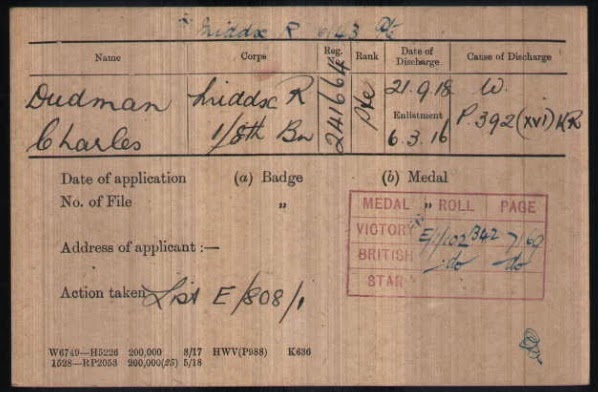 Middx R 6143 Pte
Name Corps Reg. No. Rank Date of Discharge Cause of Discharge
Dudman Middx R 241664 Pte 21.9.18 W.
Enlistment P. 392 (XVI) KR
Charles 1/8th Bn 6.3.16
Date of application (a) Badge (b) Medal
No. of File " "
MEDAL ROLL PAGE
VICTORY E/1/102 B42 7169
BRITISH do do
STAR
Address of applicant :—
Action taken List E/808/1
W6749—H5226 200,000 8/17 HWV(P988) K636
1528—RP2053 200,000(25) 5/18